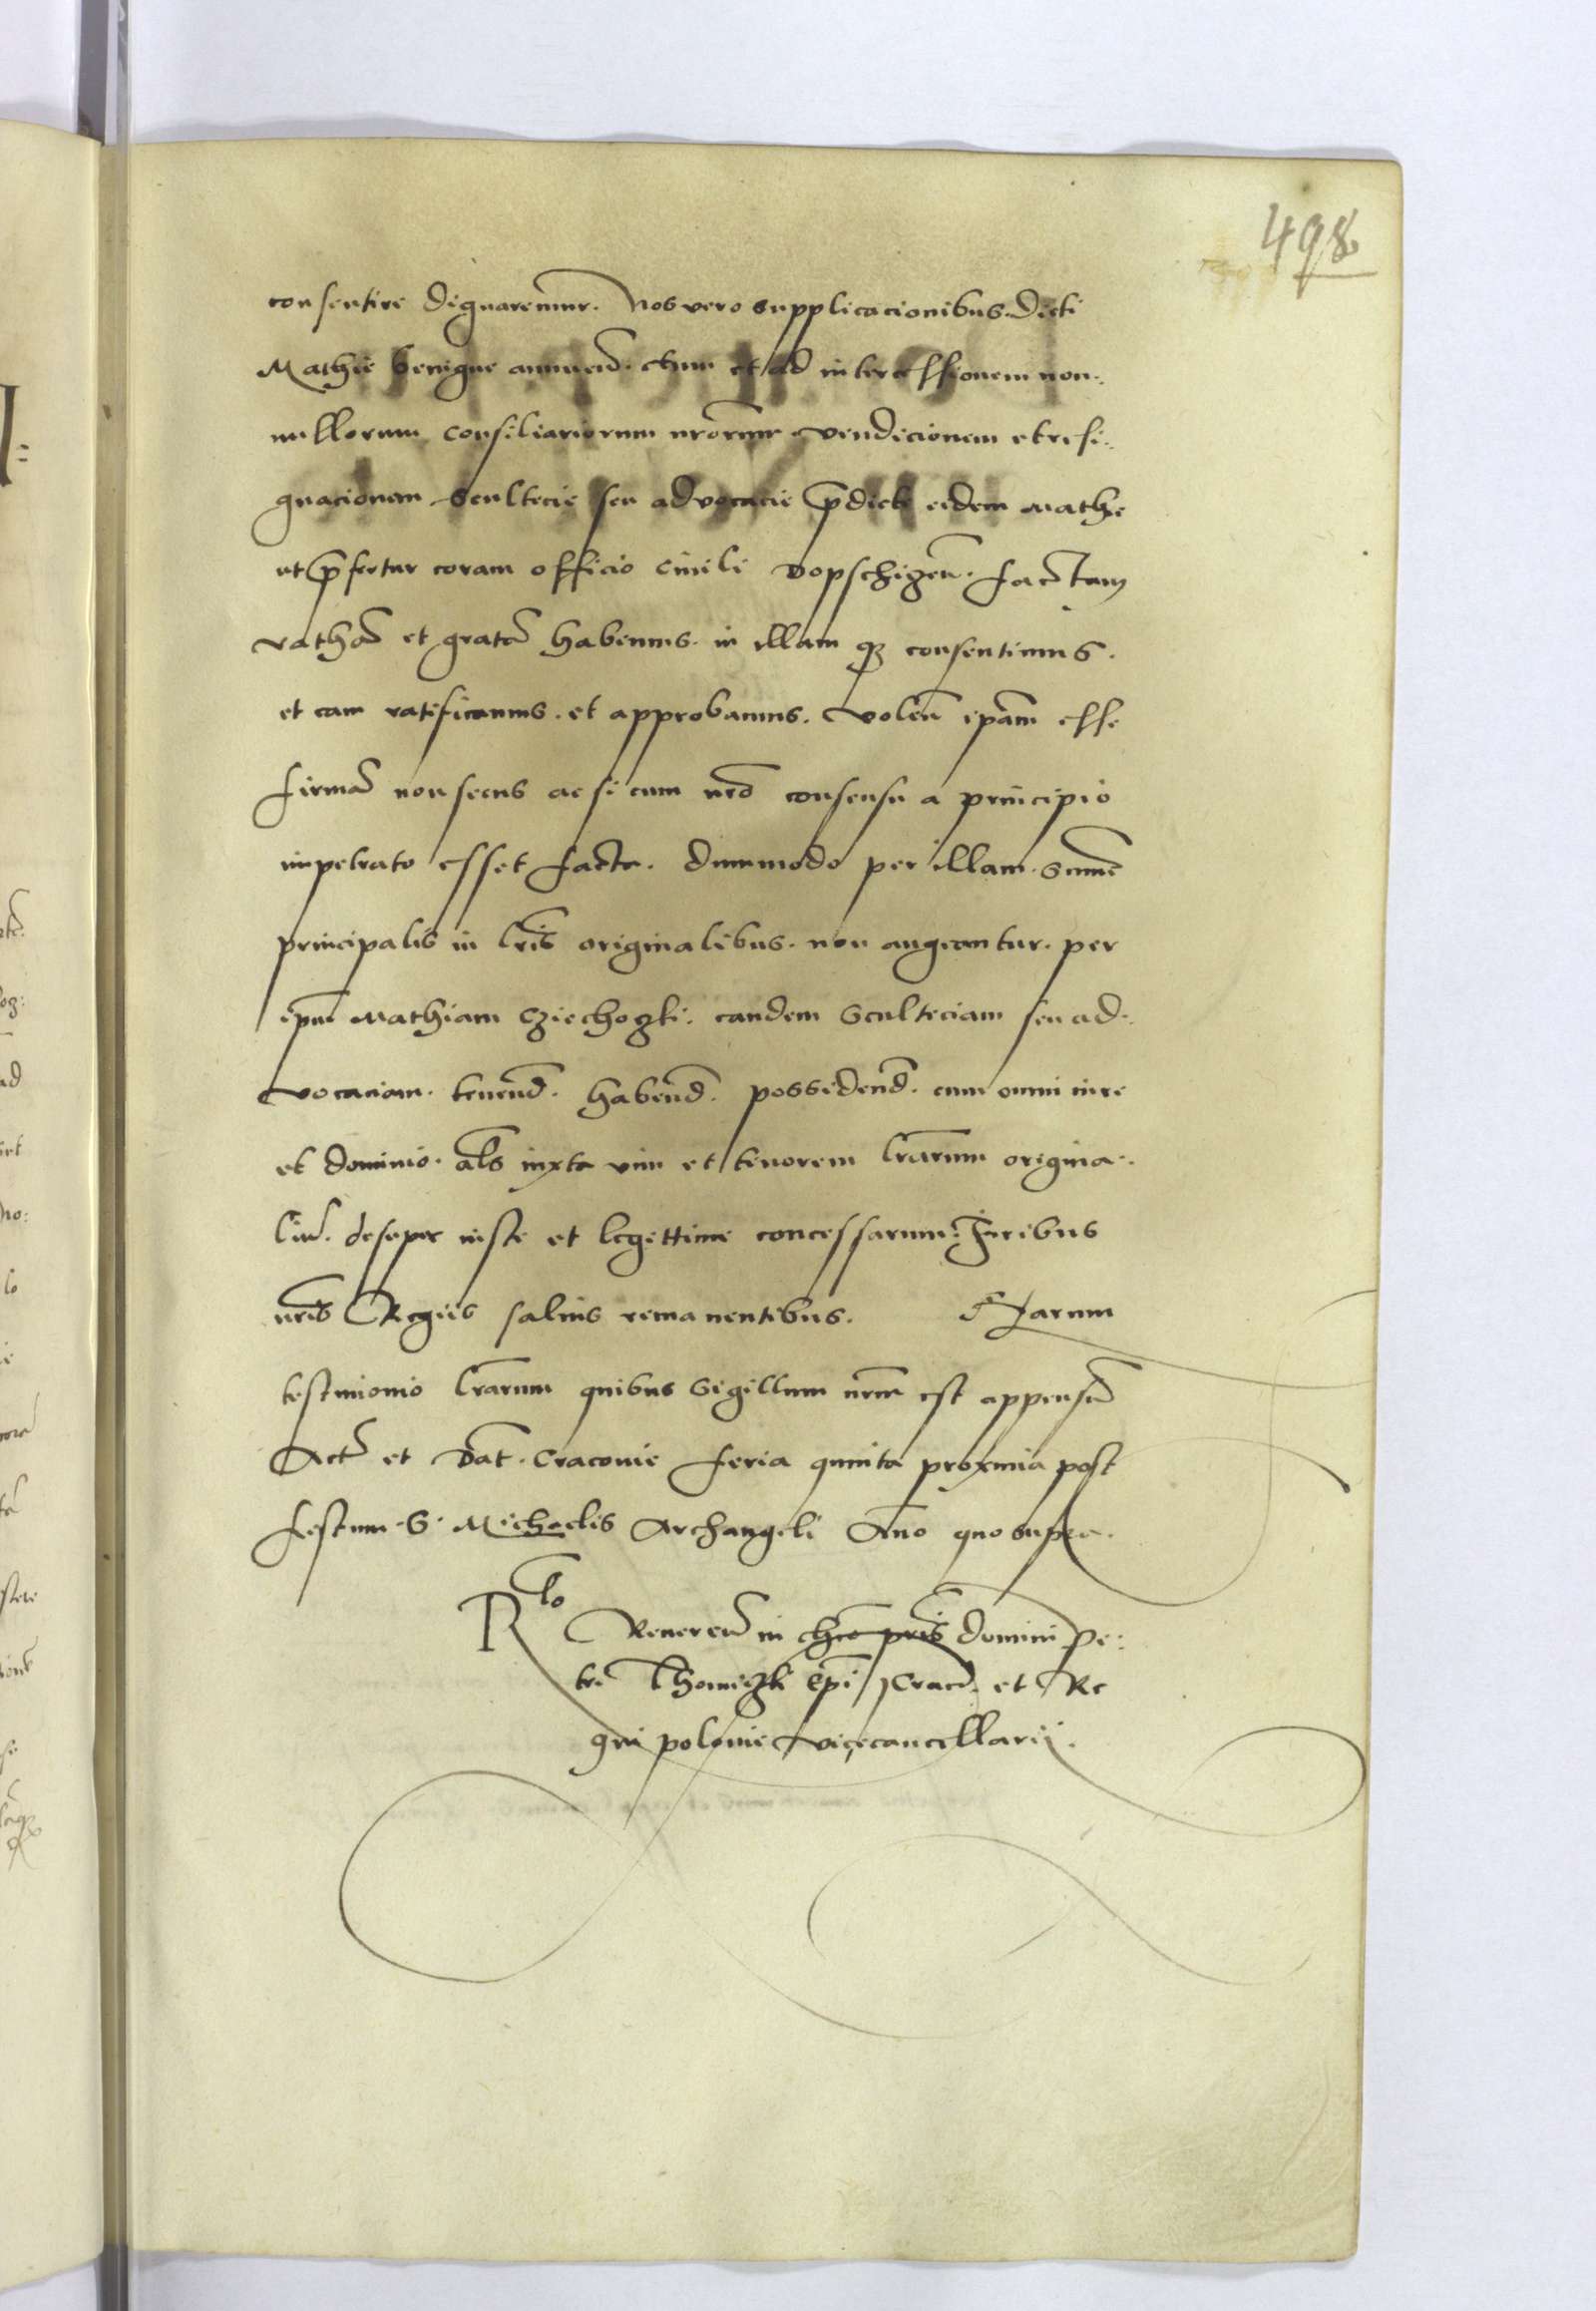 498
consentire dignaremur. Nos vero supplicacionibus. dicti
Mathie benigne annuen̄. etim et ad intercessionem non:
nullorum consiliariorum nr̄orum vendicionem et resi:
gnacionem Scultecie seu advocacie p̄dicte eidem Mathe
ut p̄fertur coram officio civili Dopschizeñ. factam
rathā et gratā habemus. in illam q3 consentimus.
et eam ratificamus. et approbamus. Volen̄ ip̄am esse
firmā non secus ac si cum nr̄o consensu a principio
impetrato esset facta. dummodo per illam. Summe
principalis in lr̄is originalibus. non augeantur. per
ip̄m Mathiam Cziechozki. eandem Sculteciam seu ad:
vocaciam. tenend̄. habend̄. possidend̄. cum omni iure
et dominio. als̄ iuxta vim et tenorem lr̄arum origina:
liū. desuper iuste et legittime concessarum. Juribus
nr̄is Regiis salvis remanentibus. Harum
testimonio lr̄arum quibus Sigillum nr̄m est appensū
Actū et Dat̄. Cracovie feria quinta proxima post
festum. S. Michaelis Archangeli An̄o quo supra.
R̄lo Reveren̄ in chr̄o pr̄is domini Pe:
tri Thomiczki ep̄i Cracō. et Re
gni Polonie Vicecancellarii.